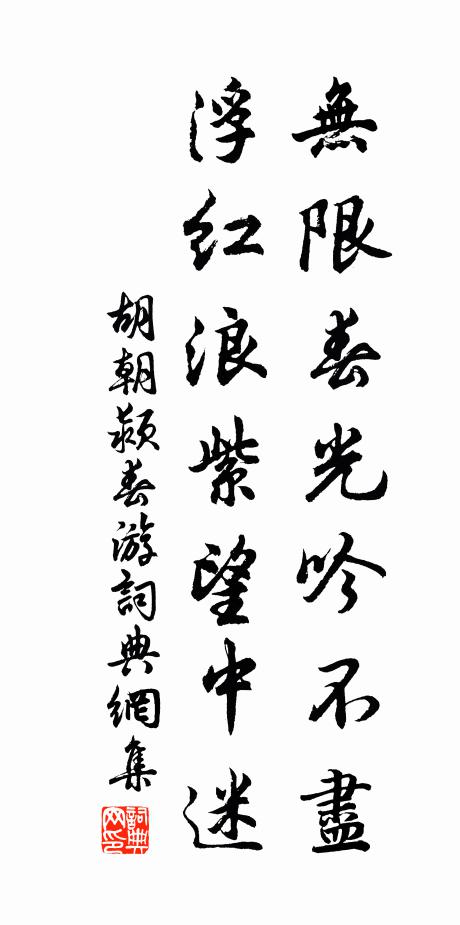 無限春光吟不盡
浮紅浪紫望中迷
胡朝颖春游詞典網集
詞典網印